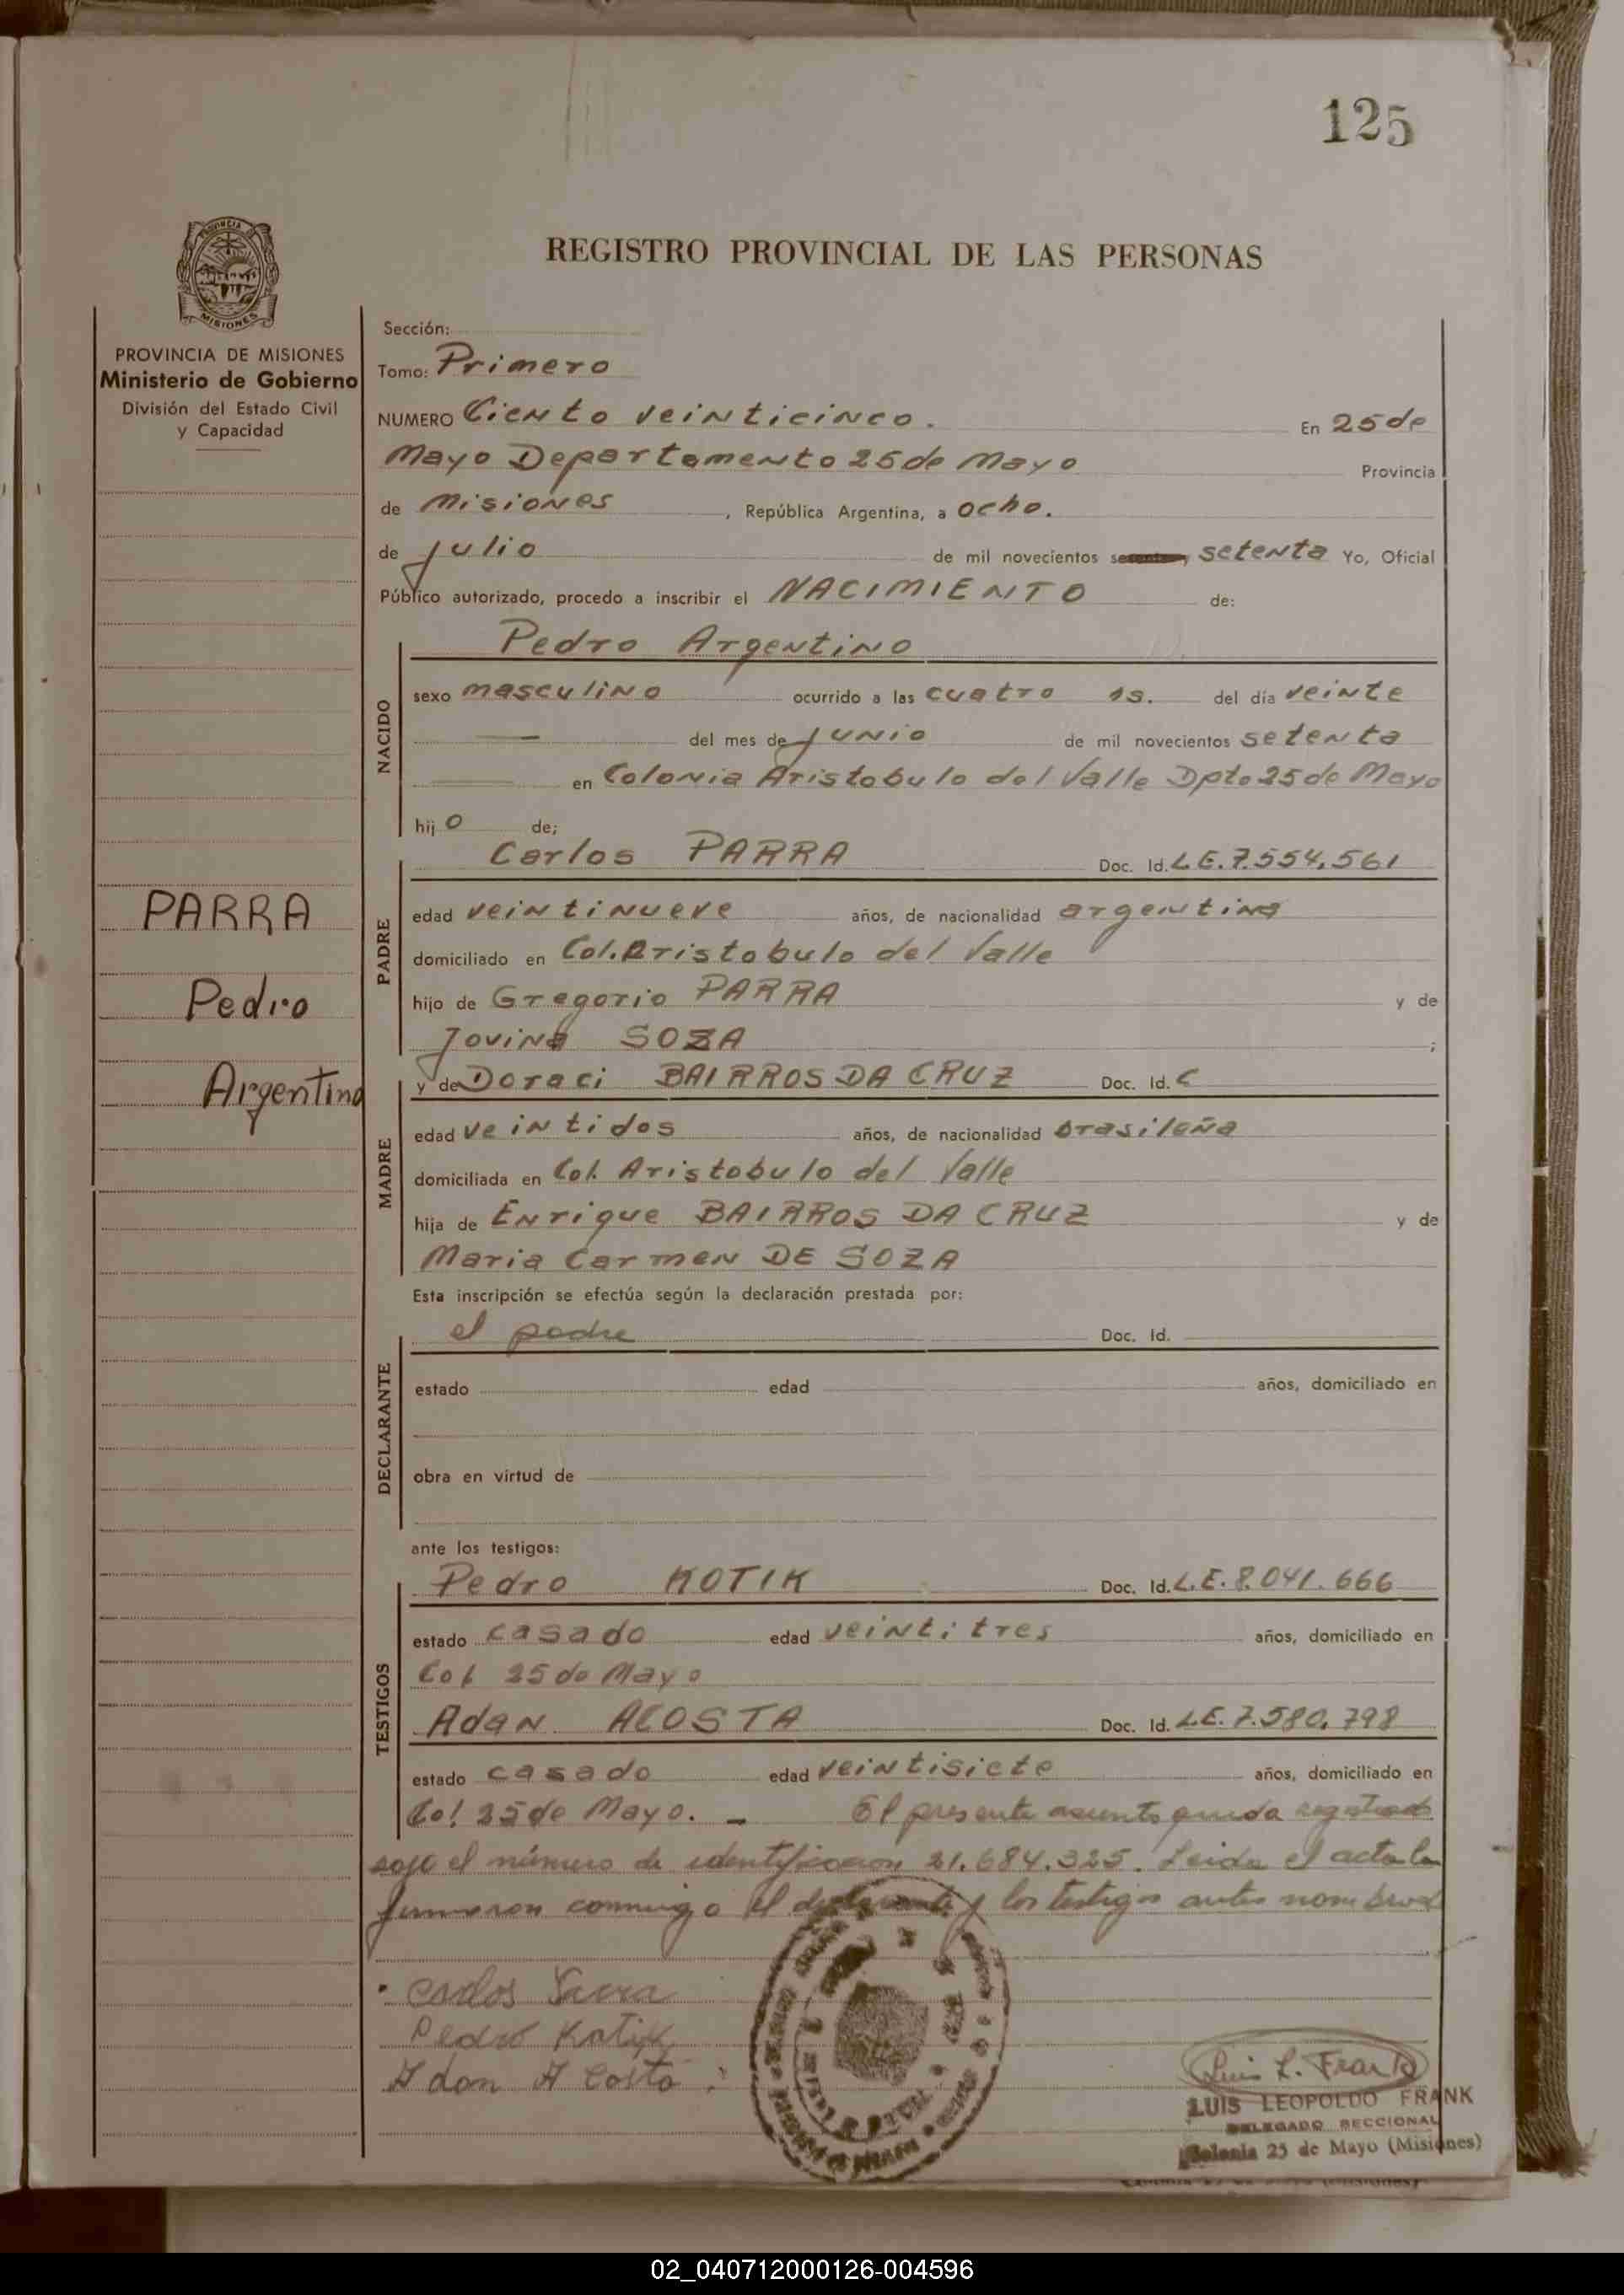 125
REGISTRO PROVINCIAL DE LAS PERSONAS
PROVINCIA DE MISIONES
Ministerio de Gobierno
División del Estado Civil
y Capacidad
PARRA
Pedro
Argentino
Sección:
Tomo: Primero
NUMERO Ciento veinticinco. En 25 de
Mayo Departamento 25 de Mayo Provincia
de Misiones, República Argentina, a ocho.
de julio de mil novecientos setenta Yo, Oficial
Público autorizado, procedo a inscribir el NACIMIENTO de:
NACIDO
Pedro Argentino
sexo masculino ocurrido a las cuatro hs. del día veinte
del mes de junio de mil novecientos setenta
en Colonia Aristobulo del Valle Dpto 25 de Mayo
hijo de;
PADRE
Carlos PARRA Doc. Id. L.E. 7.554.561
edad veintinueve años, de nacionalidad argentina
domiciliado en Col. Aristobulo del Valle
hijo de Gregorio PARRA y de
Jovina SOZA ;
MADRE
y de Doraci BAIRROS DA CRUZ Doc. Id. C
edad veintidos años, de nacionalidad brasileña
domiciliada en Col. Aristobulo del Valle
hija de Enrique BAIRROS DA CRUZ y de
Maria Carmen DE SOZA
Esta inscripción se efectúa según la declaración prestada por:
DECLARANTE
el padre Doc. Id.
estado edad años, domiciliado en
obra en virtud de
ante los testigos:
TESTIGOS
Pedro KOTIK Doc. Id. L.E. 8.041.666
estado casado edad veintitres años, domiciliado en
Col 25 de Mayo
Adan ACOSTA Doc. Id. L.E. 7.580.798
estado casado edad veintisiete años, domiciliado en
Col 25 de Mayo. — El presente asiento queda registrado
bajo el número de identificacion 21.684.325. Leida el acta la
firmaron conmigo el declarante y los testigos antes nombrad
Carlos Parra
Pedro Kotik
Adan Acosta
Luis L. Frank
LUIS LEOPOLDO FRANK
DELEGADO SECCIONAL
Colonia 25 de Mayo (Misiones)
02_040712000126-004596